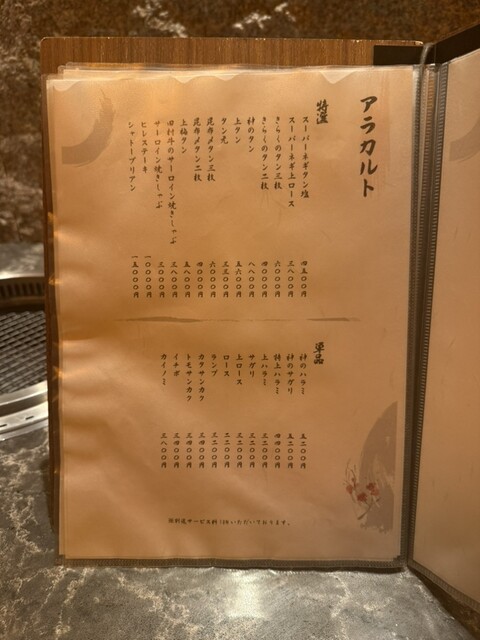 アラカルト
特選
スーパーネギタン塩 四五〇〇円
スーパーネギ上ロース 三八〇〇円
きらくのタン三枚 六〇〇〇円
きらくのタン二枚 四〇〇〇円
神のタン 八八〇〇円
上タン 五六〇〇円
タン元 三三〇〇円
昆布〆タン三枚 六〇〇〇円
昆布〆タン二枚 四〇〇〇円
上極タン 五八〇〇円
田村牛のサーロイン焼きしゃぶ 三八〇〇円
サーロイン焼きしゃぶ 三〇〇〇円
ヒレステーキ 一〇〇〇〇円
シャトーブリアン 一五〇〇〇円
単品
神のハラミ 五二〇〇円
神のサガリ 五二〇〇円
特上ハラミ 四四〇〇円
上ハラミ 三二〇〇円
サガリ 三二〇〇円
上ロース 三二〇〇円
ロース 二二〇〇円
ランプ 三二〇〇円
カタサンカク 三四〇〇円
トモサンカク 三四〇〇円
イチボ 三四〇〇円
カイノミ 三八〇〇円
別料金サービス料10%いただいております。